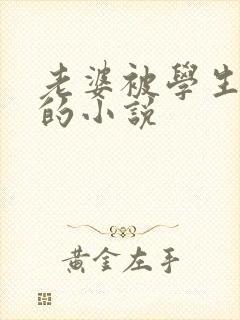 老婆被學生
的小説
黃金左手